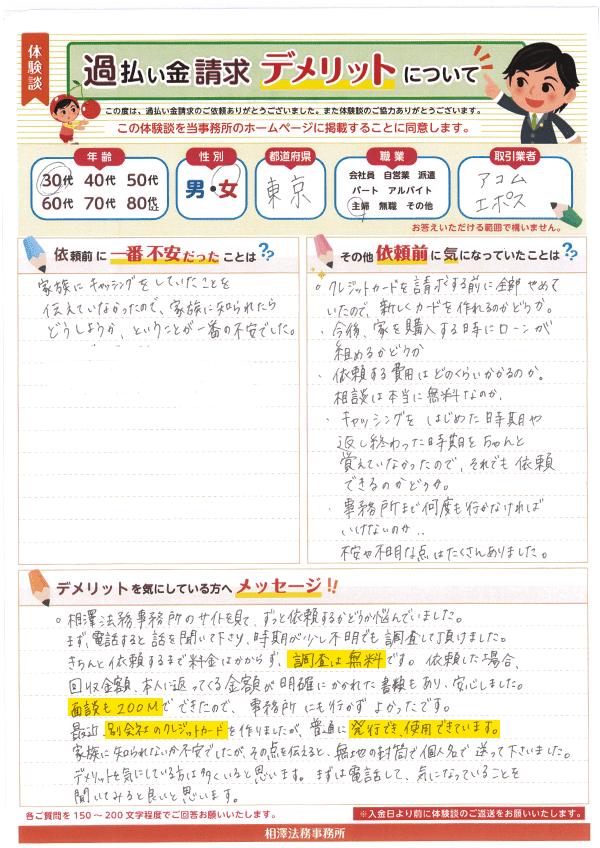 体験談
過払い金請求 デメリットについて
この度は、過払い金請求のご依頼ありがとうございました。また体験談のご協力ありがとうございます。
この体験談を当事務所のホームページに掲載することに同意します。
年齢
30代 40代 50代
60代 70代 80代以上
性別
男・女
都道府県
東京
職業
会社員 自営業 派遣
パート アルバイト
主婦 無職 その他
取引業者
アコム
エポス
お答えいただける範囲で構いません。
依頼前に一番不安だったことは??
家族にキャッシングをしていたことを
伝えていなかったので、家族に知られたら
どうしようか、ということが一番の不安でした。
その他依頼前に気になっていたことは??
○ クレジットカードを請求する前に全部やめて
いたので、新しくカードを作れるのかどうか。
・今後、家を購入する時にローンが
組めるかどうか
・依頼する費用はどのくらいかかるのか。
相談は本当に無料なのか。
・キャッシングをはじめた時期や
返し終わった時期をちゃんと
覚えていなかったので、それでも依頼
できるのかどうか。
・事務所まで何度も行かなければ
いけないのか..
不安や不明な点はたくさんありました。
デメリットを気にしている方へメッセージ!!
○ 相澤法務事務所のサイトを見て、ずっと依頼するかどうか悩んでいました。
まず、電話すると話を聞いて下さり、時期が少し不明でも調査して頂けました。
きちんと依頼するまで料金はかからず、調査は無料です。依頼した場合、
回収金額、本人に返ってくる金額が明確にかかれた書類もあり、安心しました。
面談もZOOMでできたので、事務所にも行かずよかったです。
最近、別会社のクレジットカードを作りましたが、普通に発行でき、使用できています。
家族に知られないか不安でしたが、その点を伝えると、無地の封筒で個人名で送って下さいました。
デメリットを気にしている方は多くいると思います。まずは電話して、気になっていることを
聞いてみると良いと思います。
各ご質問を150～200文字程度でご回答お願いいたします。
※入金日より前に体験談のご返送をお願いいたします。
相澤法務事務所